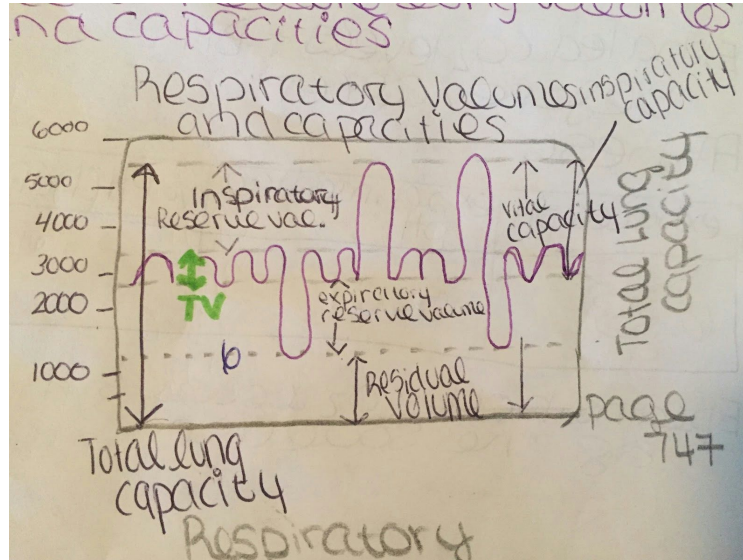 na capacities
Respiratory Valumes
and capacities
inspiratory
capacity
6000
5000
4000
3000
2000
1000
Inspiratory
Reserve val.
TV
expiratory
reserve valume
Vital
capacity
Residual
Volume
Total lung
capacity
page
747
Total lung
capacity
Respiratory